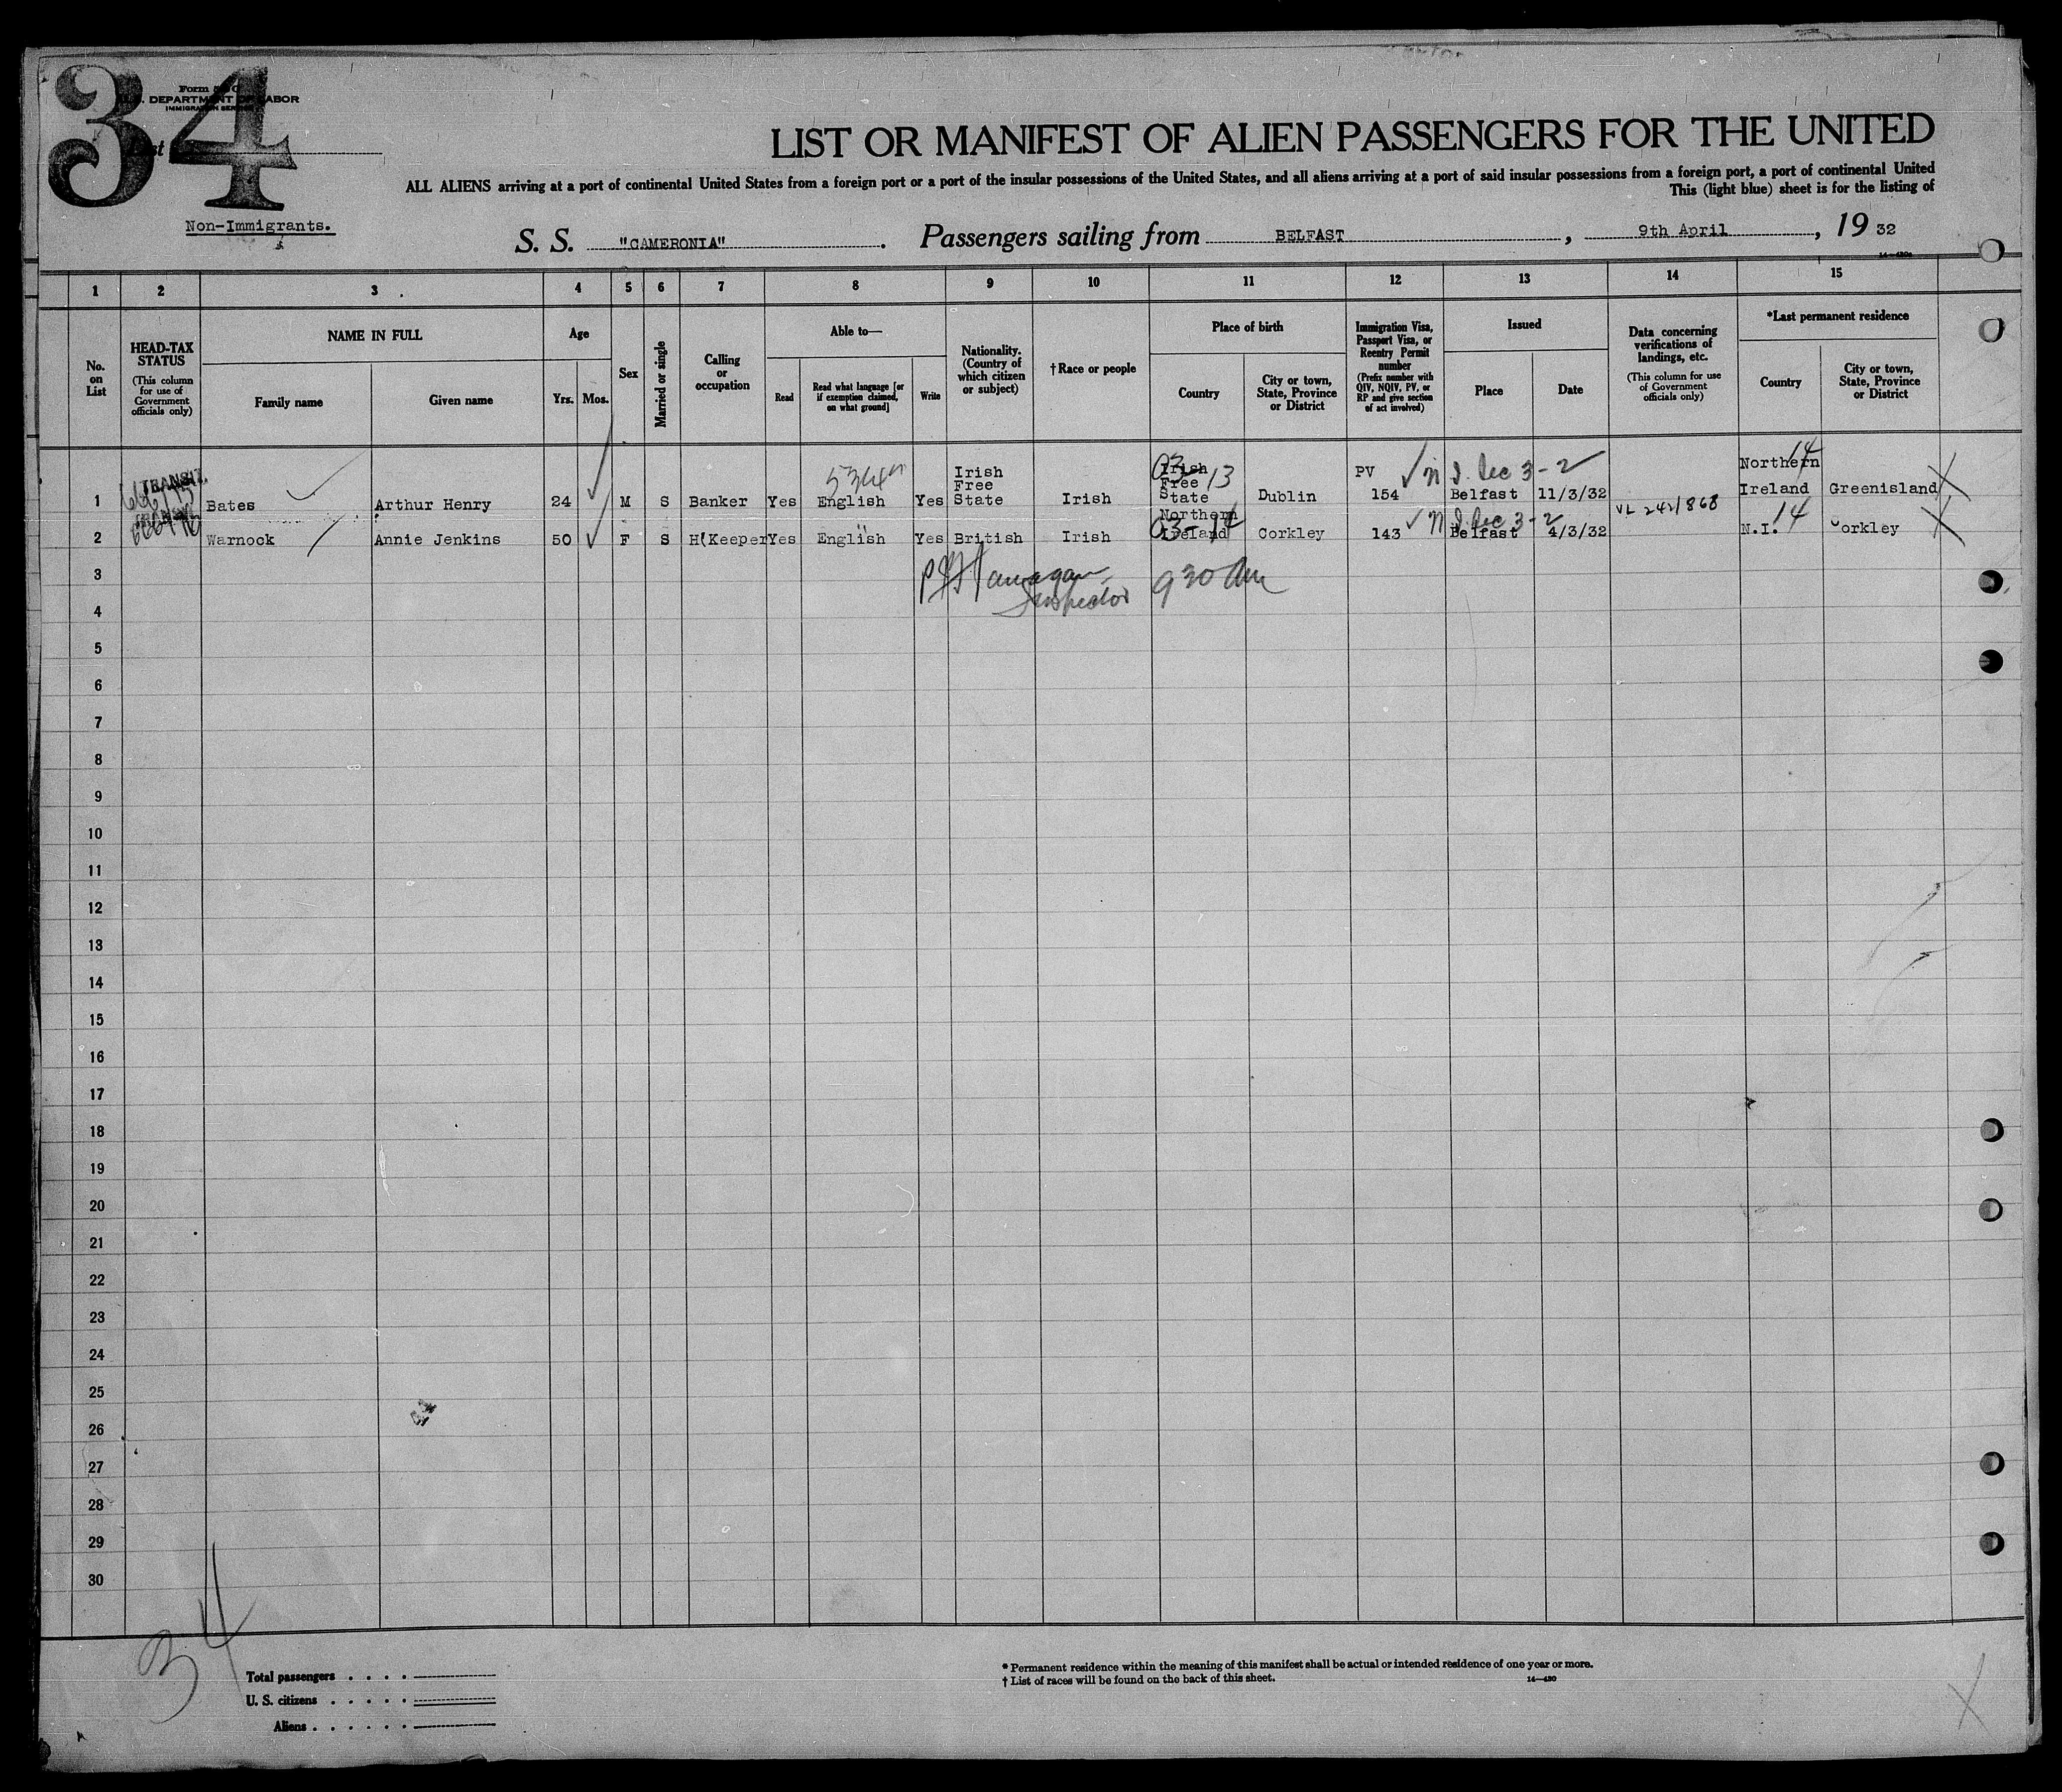 34
Form 500
U.S. DEPARTMENT OF LABOR
IMMIGRATION SERVICE
List
LIST OR MANIFEST OF ALIEN PASSENGERS FOR THE UNITED
ALL ALIENS arriving at a port of continental United States from a foreign port or a port of the insular possessions of the United States, and all aliens arriving at a port of said insular possessions from a foreign port, a port of continental United
This (light blue) sheet is for the listing of
Non-Immigrants.
S. S. "CAMERONIA". Passengers sailing from BELFAST, 9th April, 19 32
14—430a
1 2 3 4 5 6 7 8 9 10 11 12 13 14 15
No. on List
HEAD-TAX STATUS
(This column for use of Government officials only)
NAME IN FULL
Family name
Given name
Age
Yrs. Mos.
Sex
Married or single
Calling or occupation
Able to—
Read
Read what language [or if exemption claimed, on what ground]
Write
Nationality. (Country of which citizen or subject)
†Race or people
Place of birth
Country
City or town, State, Province or District
Immigration Visa, Passport Visa, or Reentry Permit number
(Prefix number with QIV, NQIV, PV, or RP and give section of act involved)
Issued
Place
Date
Data concerning verifications of landings, etc.
(This column for use of Government officials only)
*Last permanent residence
Country
City or town, State, Province or District
1 TRANSIT Bates Arthur Henry 24 M S Banker Yes English Yes Irish Free State Irish Irish Free State 03-13 Dublin PV 154 Belfast 11/3/32 Northern Ireland 14 Greenisland X
2 Warnock Annie Jenkins 50 F S H'Keeper Yes English Yes British Irish Northern Ireland 03-14 Corkley 143 Belfast 4/3/32 N.I. 14 Corkley X
3 Inspector 930 Am
4
5
6
7
8
9
10
11
12
13
14
15
16
17
18
19
20
21
22
23
24
25
26
27
28
29
30
34
Total passengers . . . .
U. S. citizens . . . . .
Aliens . . . . . .
* Permanent residence within the meaning of this manifest shall be actual or intended residence of one year or more.
† List of races will be found on the back of this sheet.
14—430
X